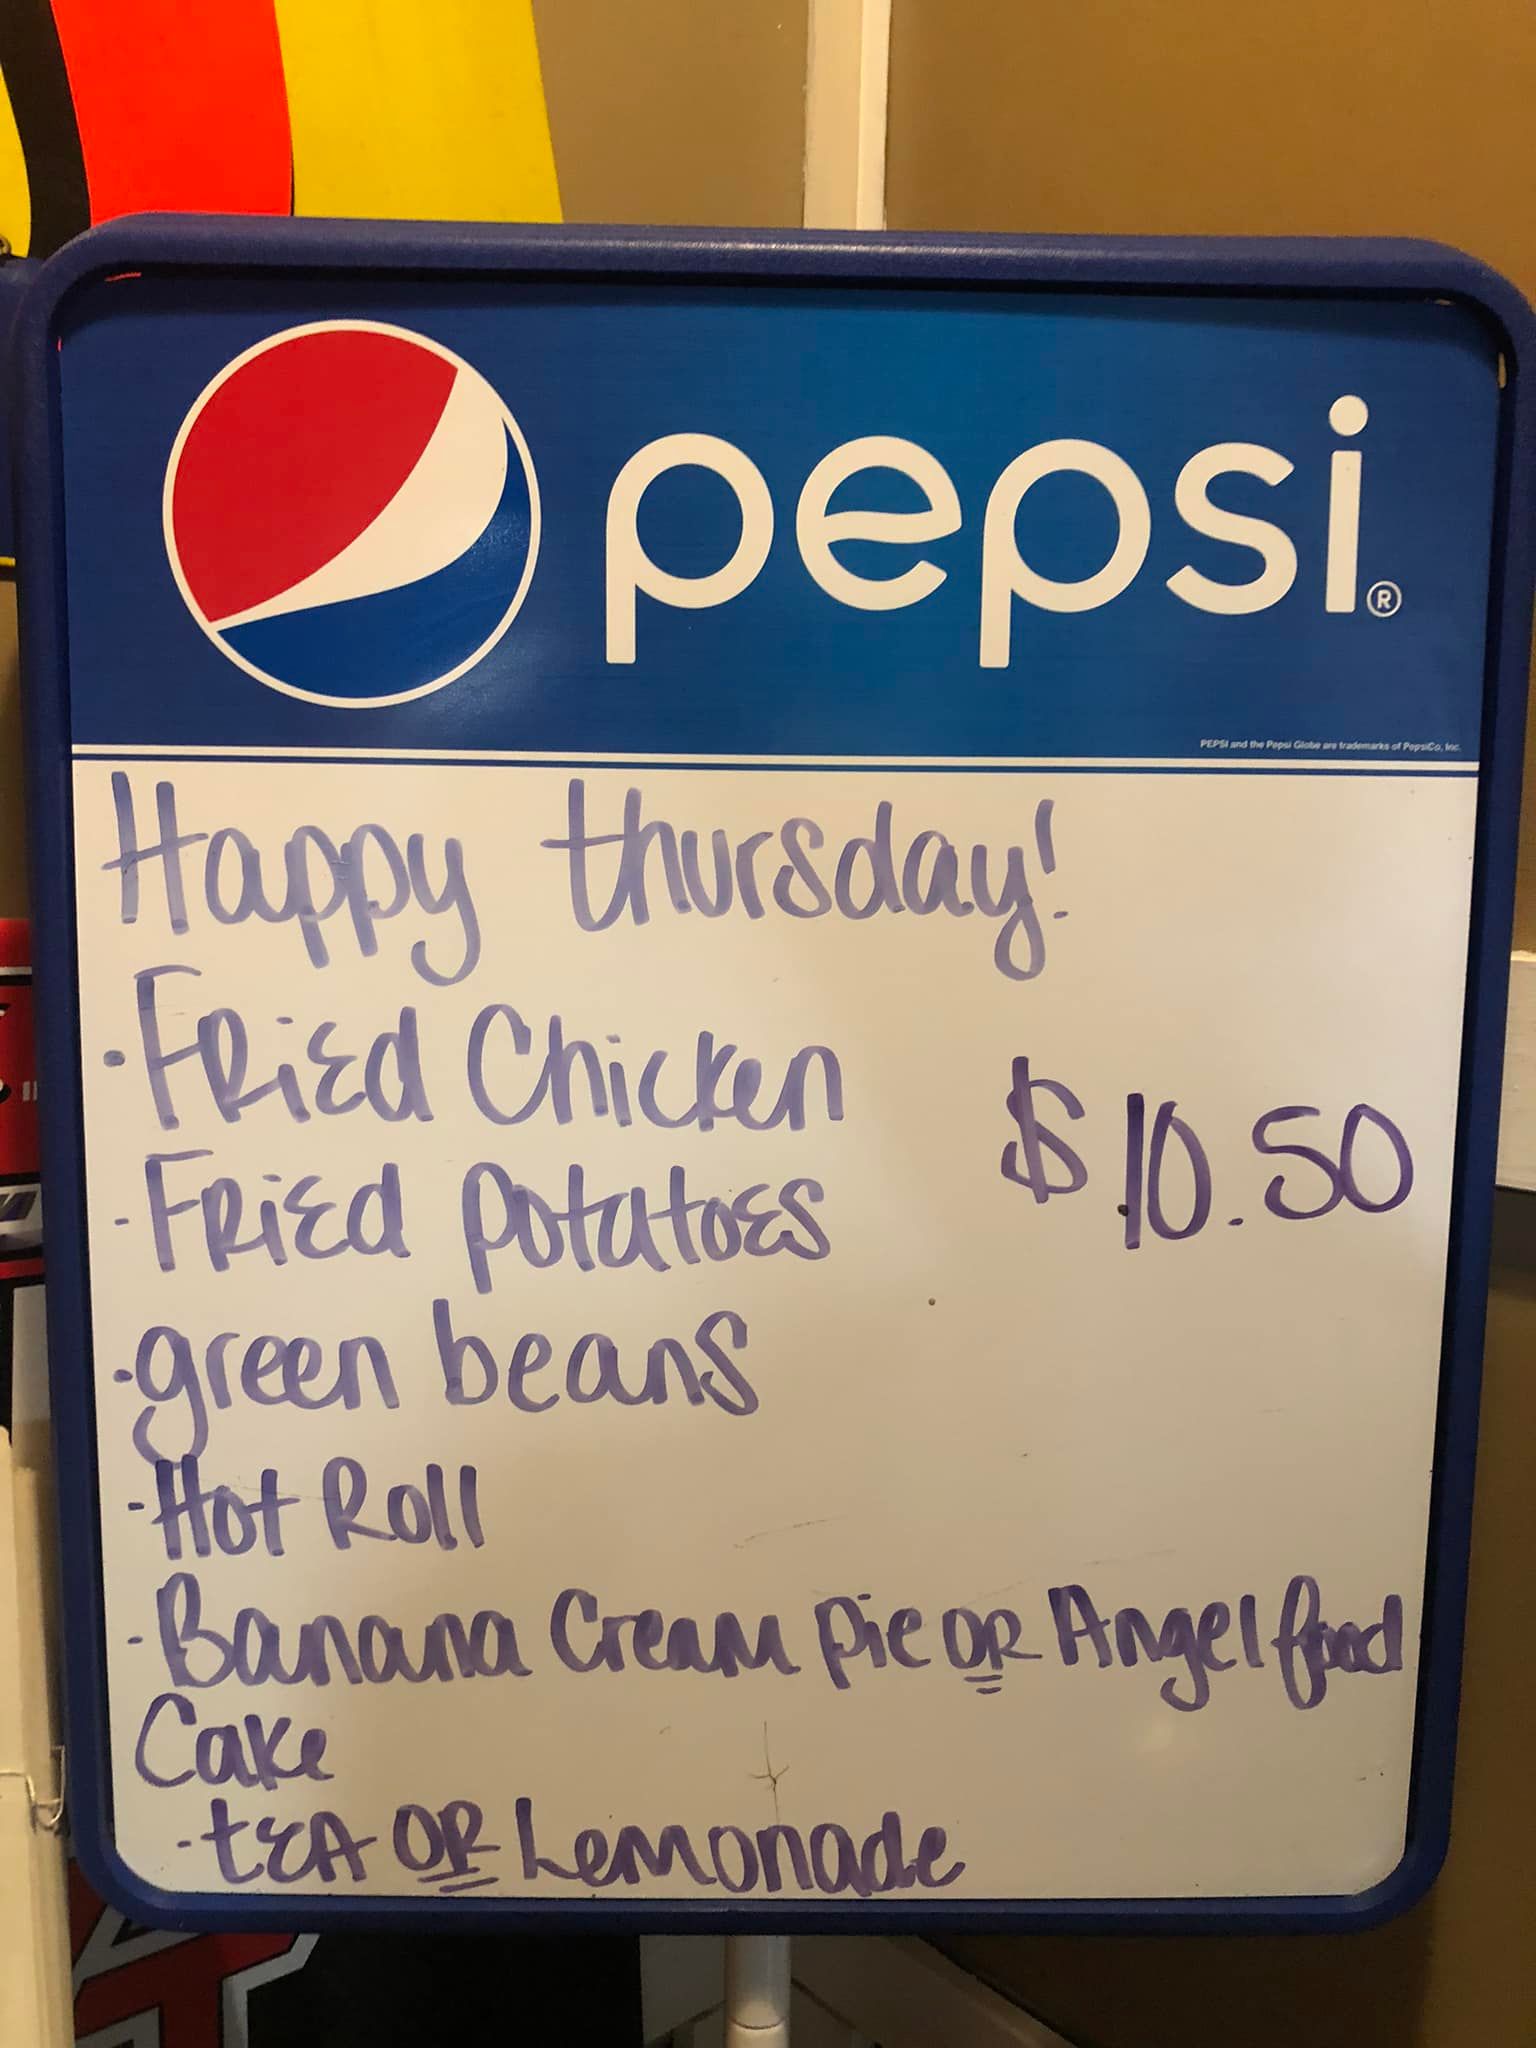 pepsi®
PEPSI and the Pepsi Globe are trademarks of PepsiCo, Inc.
Happy thursday!
·Fried Chicken
$10.50
-Fried potatoes
·green beans
-Hot Roll
-Banana Cream pie OR Angel food
Cake
-tEA OR Lemonade